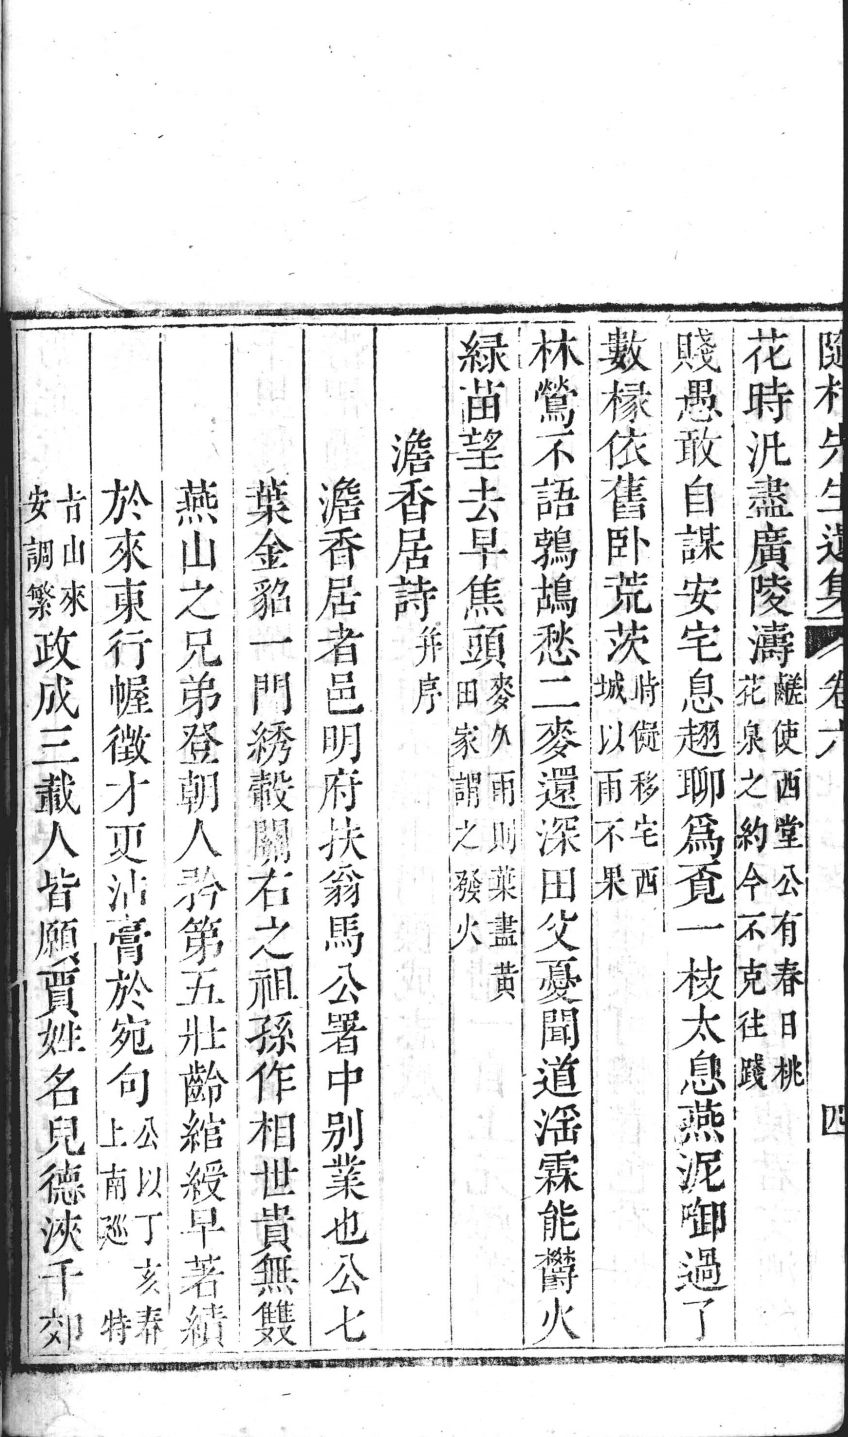 隨村先生遺集 卷六 四
花時汎盡廣陵濤鹺使西堂公有春日桃花泉之約今不克往踐
賤愚敢自謀安宅息趐聊爲覔一枝太息燕泥啣過了
數椽依舊卧荒茨時儗移宅西城以雨不果
林鶯不語鶉鴣愁二麥還深田父憂聞道滛霖能欝火
緑苗望去早焦頭麥久雨則葉盡黃田家謂之發火
澹香居詩并序
澹香居者邑明府扶翁馬公署中別業也公七
葉金貂一門綉轂關右之祖孫作相世貴無雙
燕山之兄弟登朝人矜第五壯齡綰綬早著績
於來東行幄徵才更沾膏於宛句公以丁亥春上南廵特
旨山來安調繁政成三載人皆願賈姓名兒德浹千郊